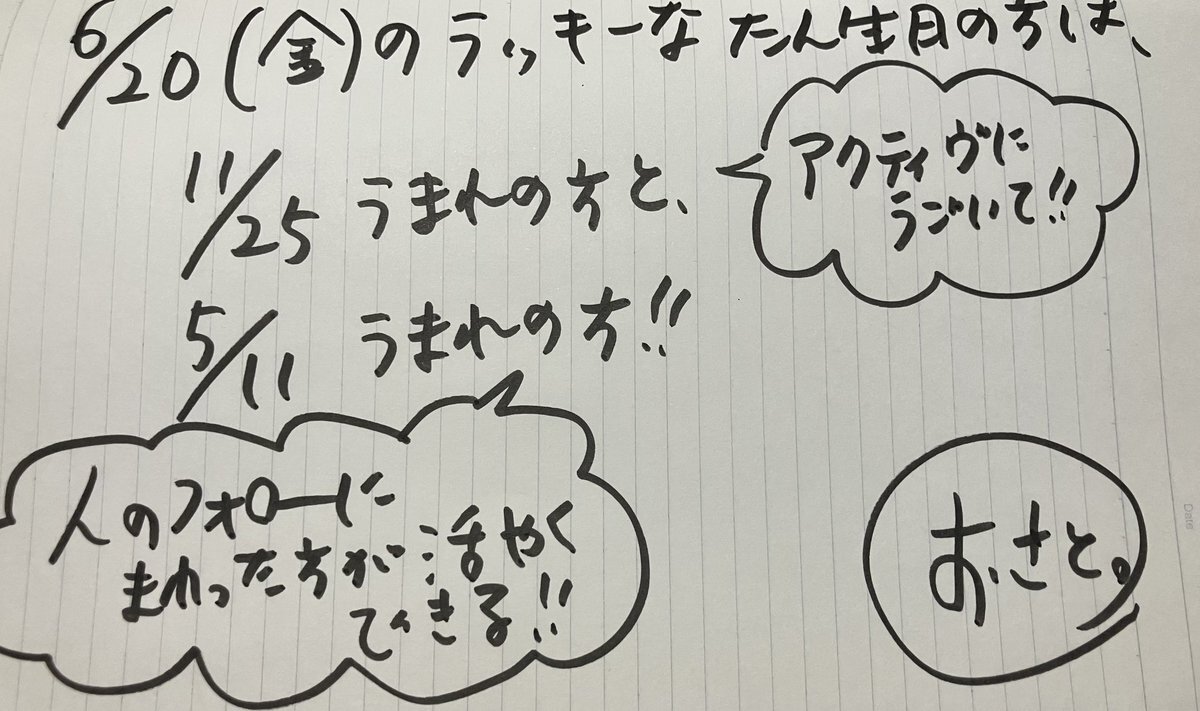 6/20(金)のラッキーなたん生日の方は、
11/25 うまれの方と、
アクティヴに
うごいて!!
5/11 うまれの方!!
人のフォローに
まわった方が活やく
できる!!
おさと。
Date